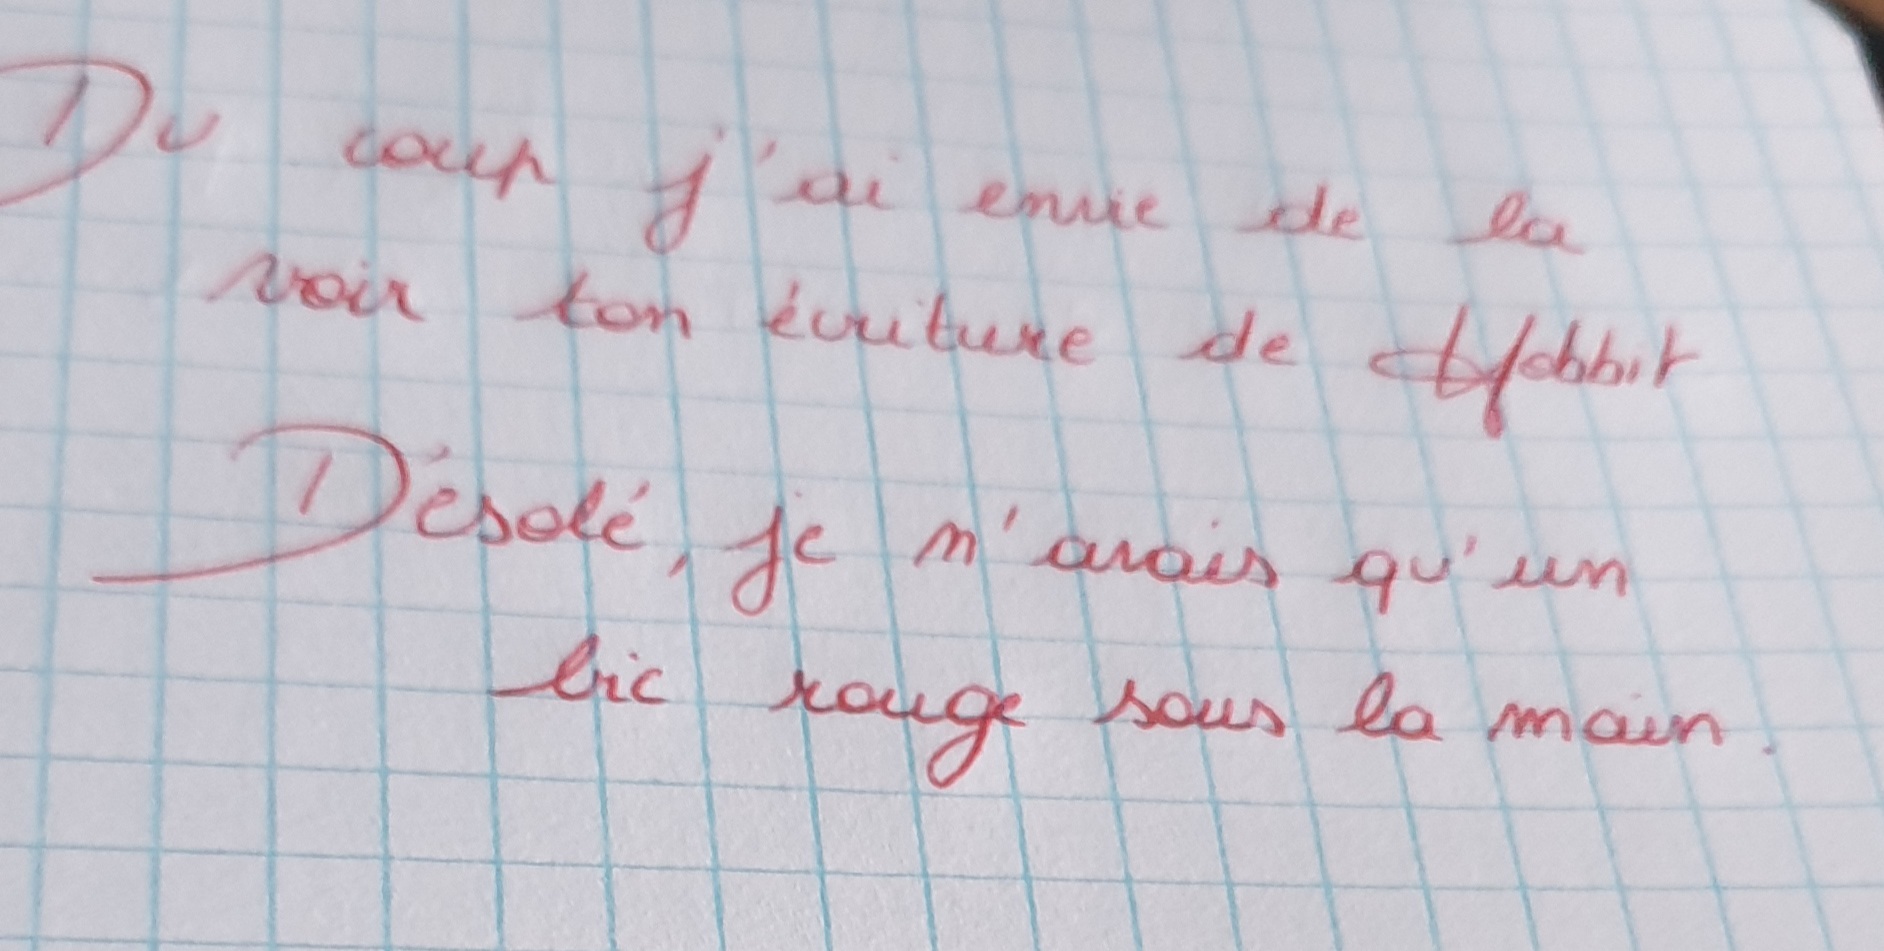 Du coup j'ai envie de la
voir ton écriture de Hobbit
Désolé, je n'avais qu'un
bic rouge sous la main.